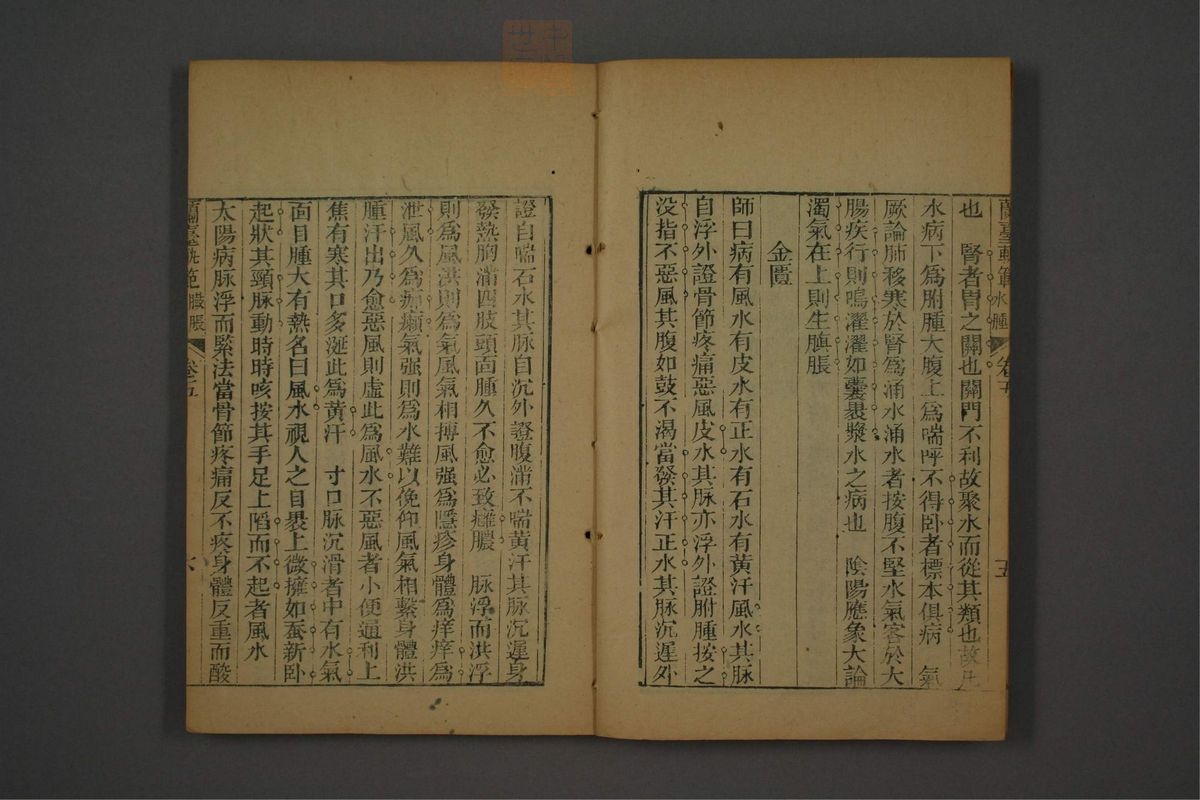 也　腎者胃之關也關門不利故聚水而從其類也故凡
水病下爲胕腫大腹上爲喘呼不得卧者標本俱病　氣
厥論肺移寒於腎爲涌水涌水者按腹不堅水氣客於大
腸疾行則鳴濯濯如囊裹漿水之病也　陰陽應象大論
濁氣在上則生䐜脹
金匱
師曰病有風水有皮水有正水有石水有黃汗風水其脉
自浮外證骨節疼痛惡風皮水其脉亦浮外證胕腫按之
没指不惡風其腹如鼓不渴當發其汗正水其脉沉遲外
證自喘石水其脉自沉外證腹滿不喘黃汗其脉沉遲身
發熱胸滿四肢頭面腫久不愈必致癰膿　脉浮而洪浮
則爲風洪則爲氣風氣相搏風强爲隱疹身體爲痒痒爲
泄風久爲痂癩氣强則爲水難以俛仰風氣相繫身體洪
腫汗出乃愈惡風則虛此爲風水不惡風者小便通利上
焦有寒其口多涎此爲黃汗　寸口脉沉滑者中有水氣
面目腫大有熱名曰風水視人之目裹上微擁如蚕新卧
起狀其頸脉動時時咳按其手足上陷而不起者風水
太陽病脉浮而緊法當骨節疼痛反不疼身體反重而酸